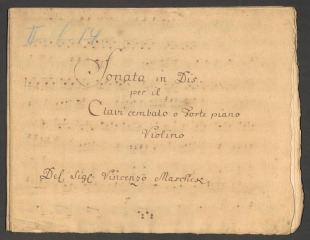 II. c. 14
Sonata in Dis.
per il
Clavicembalo o Forte piano
Violino
Del Sigl: Vincenzo Maschek